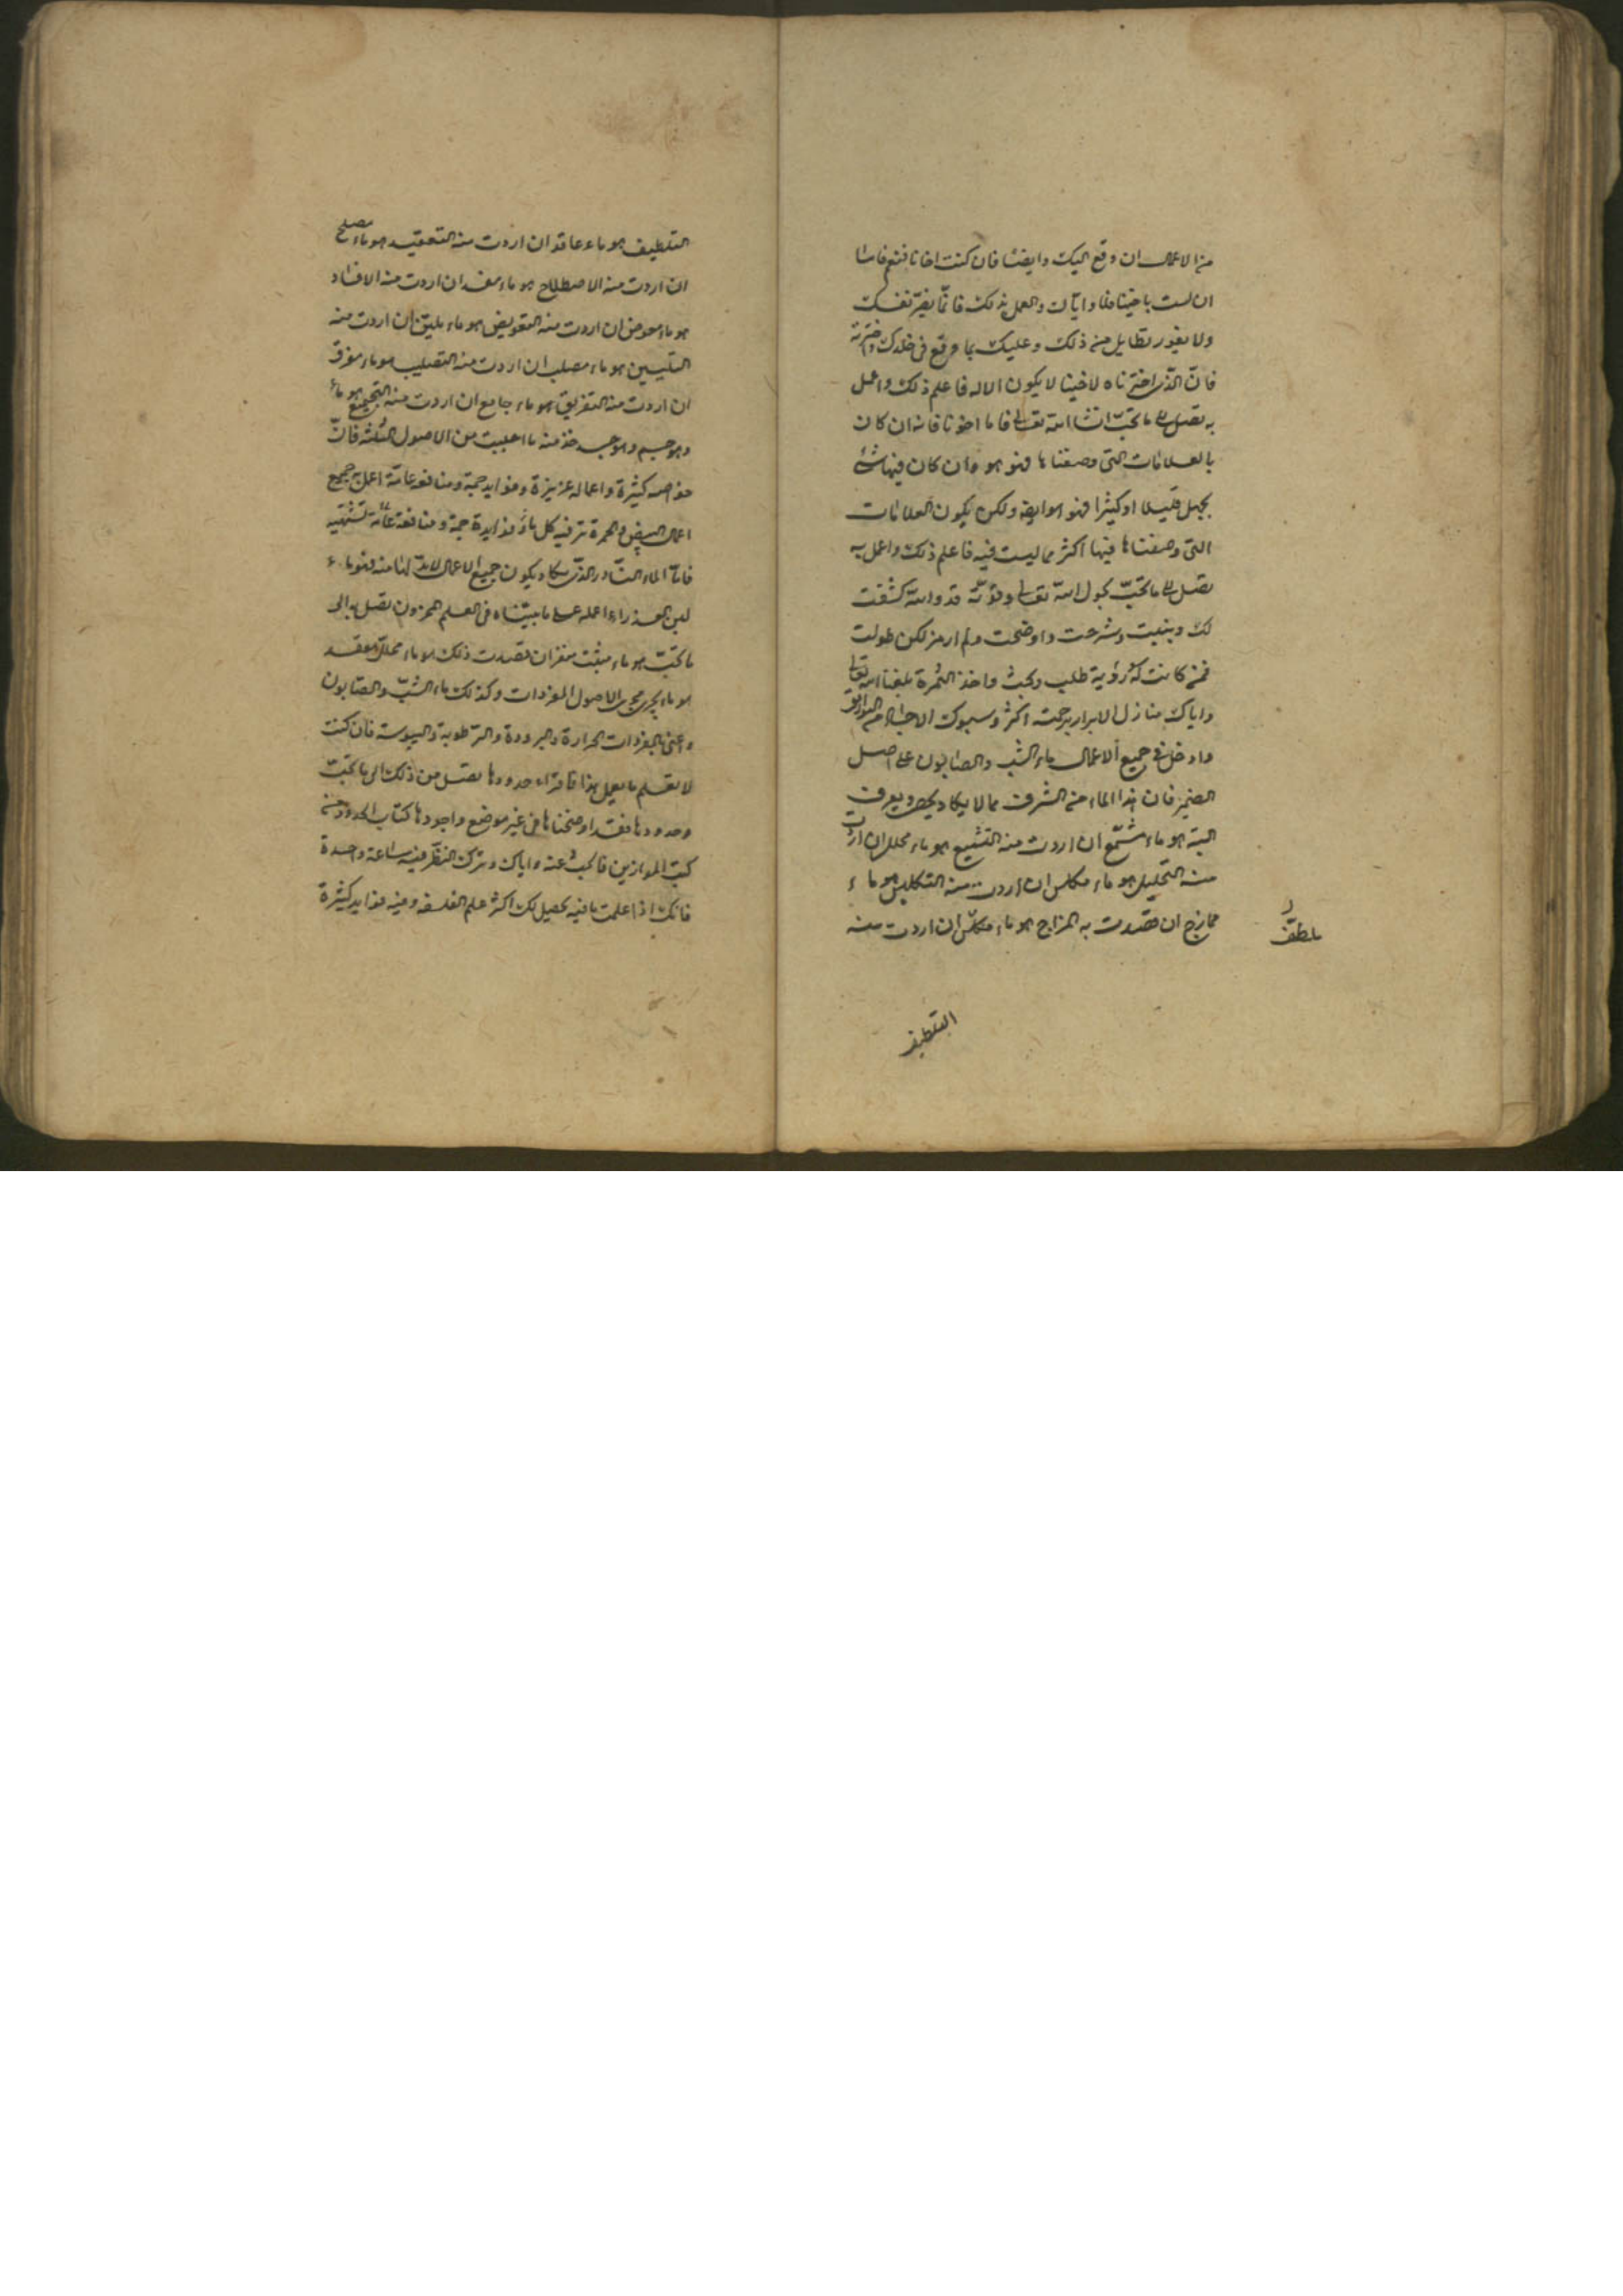 من الاعمال ان وقع اليك وايضا فان كنت اخانا فنعم فاما
ان لست باخينا فلا واياك والعمل بذلك فانما يضر نفسك
ولا يفوز بطايل من ذلك وعليك بما وقع فى خلدك واخترته
فان الذى اخترناه لاخينا لا يكون الا له فاعلم ذلك واعمل
به تصل الى ما تحب انشا الله تعالى فاما اخونا فانه ان كان
بالعلامات التى وصفناها فهو هو وان كان فيها شئ
بجهل قليلا او كثيرا فهو هو ايضا ولكن يكون العلامات
التى وصفناها فيها اكثر مما ليست فيه فاعلم ذلك واعمل به
تصل الى ما تحب بحول الله تعالى وقوته قد والله كشفت
لك وبينت وشرحت واوضحت ولم ارمز لكن طولت
فمن كانت له رؤية طلب وبحث واخذ الثمرة بلغنا الله تعالى
واياك منازل الابرار برحمته اكثر
وادخل فى جميع الاعمال ماء الشب والصابون على اصل
فان هذا الماء من الشرف مما لا يكاد يحصى ويعرف
البتة هو ماء مشمع ان اردت منه التشميع هو ماء محلل ان اردت
منه التحليل هو ماء مكلس ان اردت منه التكليس هو ماء
ممازج ان قصدت به المزاج هو ماء ان اردت منه
ملطف
التلطيف
التلطيف هو ماء عاقد ان اردت منه التعقيد هو ماء مصلح
ان اردت منه الاصطلاح هو ماء مفسد ان اردت منه الافساد
هو ماء معوض ان اردت منه التعويض هو ماء ملين ان اردت منه
التليين هو ماء مصلب ان اردت منه التصليب هو ماء مفرق
ان اردت منه التفريق هو ماء جامع ان اردت منه التجميع هو ماء
وهو جسم وهو جسد خذ منه ما احببت من الاصول الثلثة فان
خواصه كثيرة واعماله عزيزة وفوايده جمة ومنافعه عامة اعمل به جميع
اعمال البيض والحمرة تر فيه كل ماء وفوايده جمة ومنافعة عامة تشتهيه
فاما الماء النادر الذى يكاد يكون جميع الاعمال لابد لها منه فهو ماء
لبن العذراء اعمله على ما بيناه فى العلم المخزون تصل به الى
ما تحب هو ماء مثبت منفر ان قصدت ذلك هو ماء محلل معقد
هو ماء يجرى مجرى الاصول المفردات وكذلك ماء الشب والصابون
واعنى بالمفردات الحرارة والبرودة والرطوبة واليبوسة فان كنت
لا تعلم ما يعمل هذا فاقراء حدودها تصل من ذلك الى ما تحب
وحدودها فقد اوضحناها فى غير موضع واجودها كتاب الحدود من
كتب الموازين فابحث عنه واياك وترك النظر فيه ساعة واحدة
فانك اذا علمت ما فيه تحصل لك اكثر علم الفلسفة وفيه فوايد كثيرة